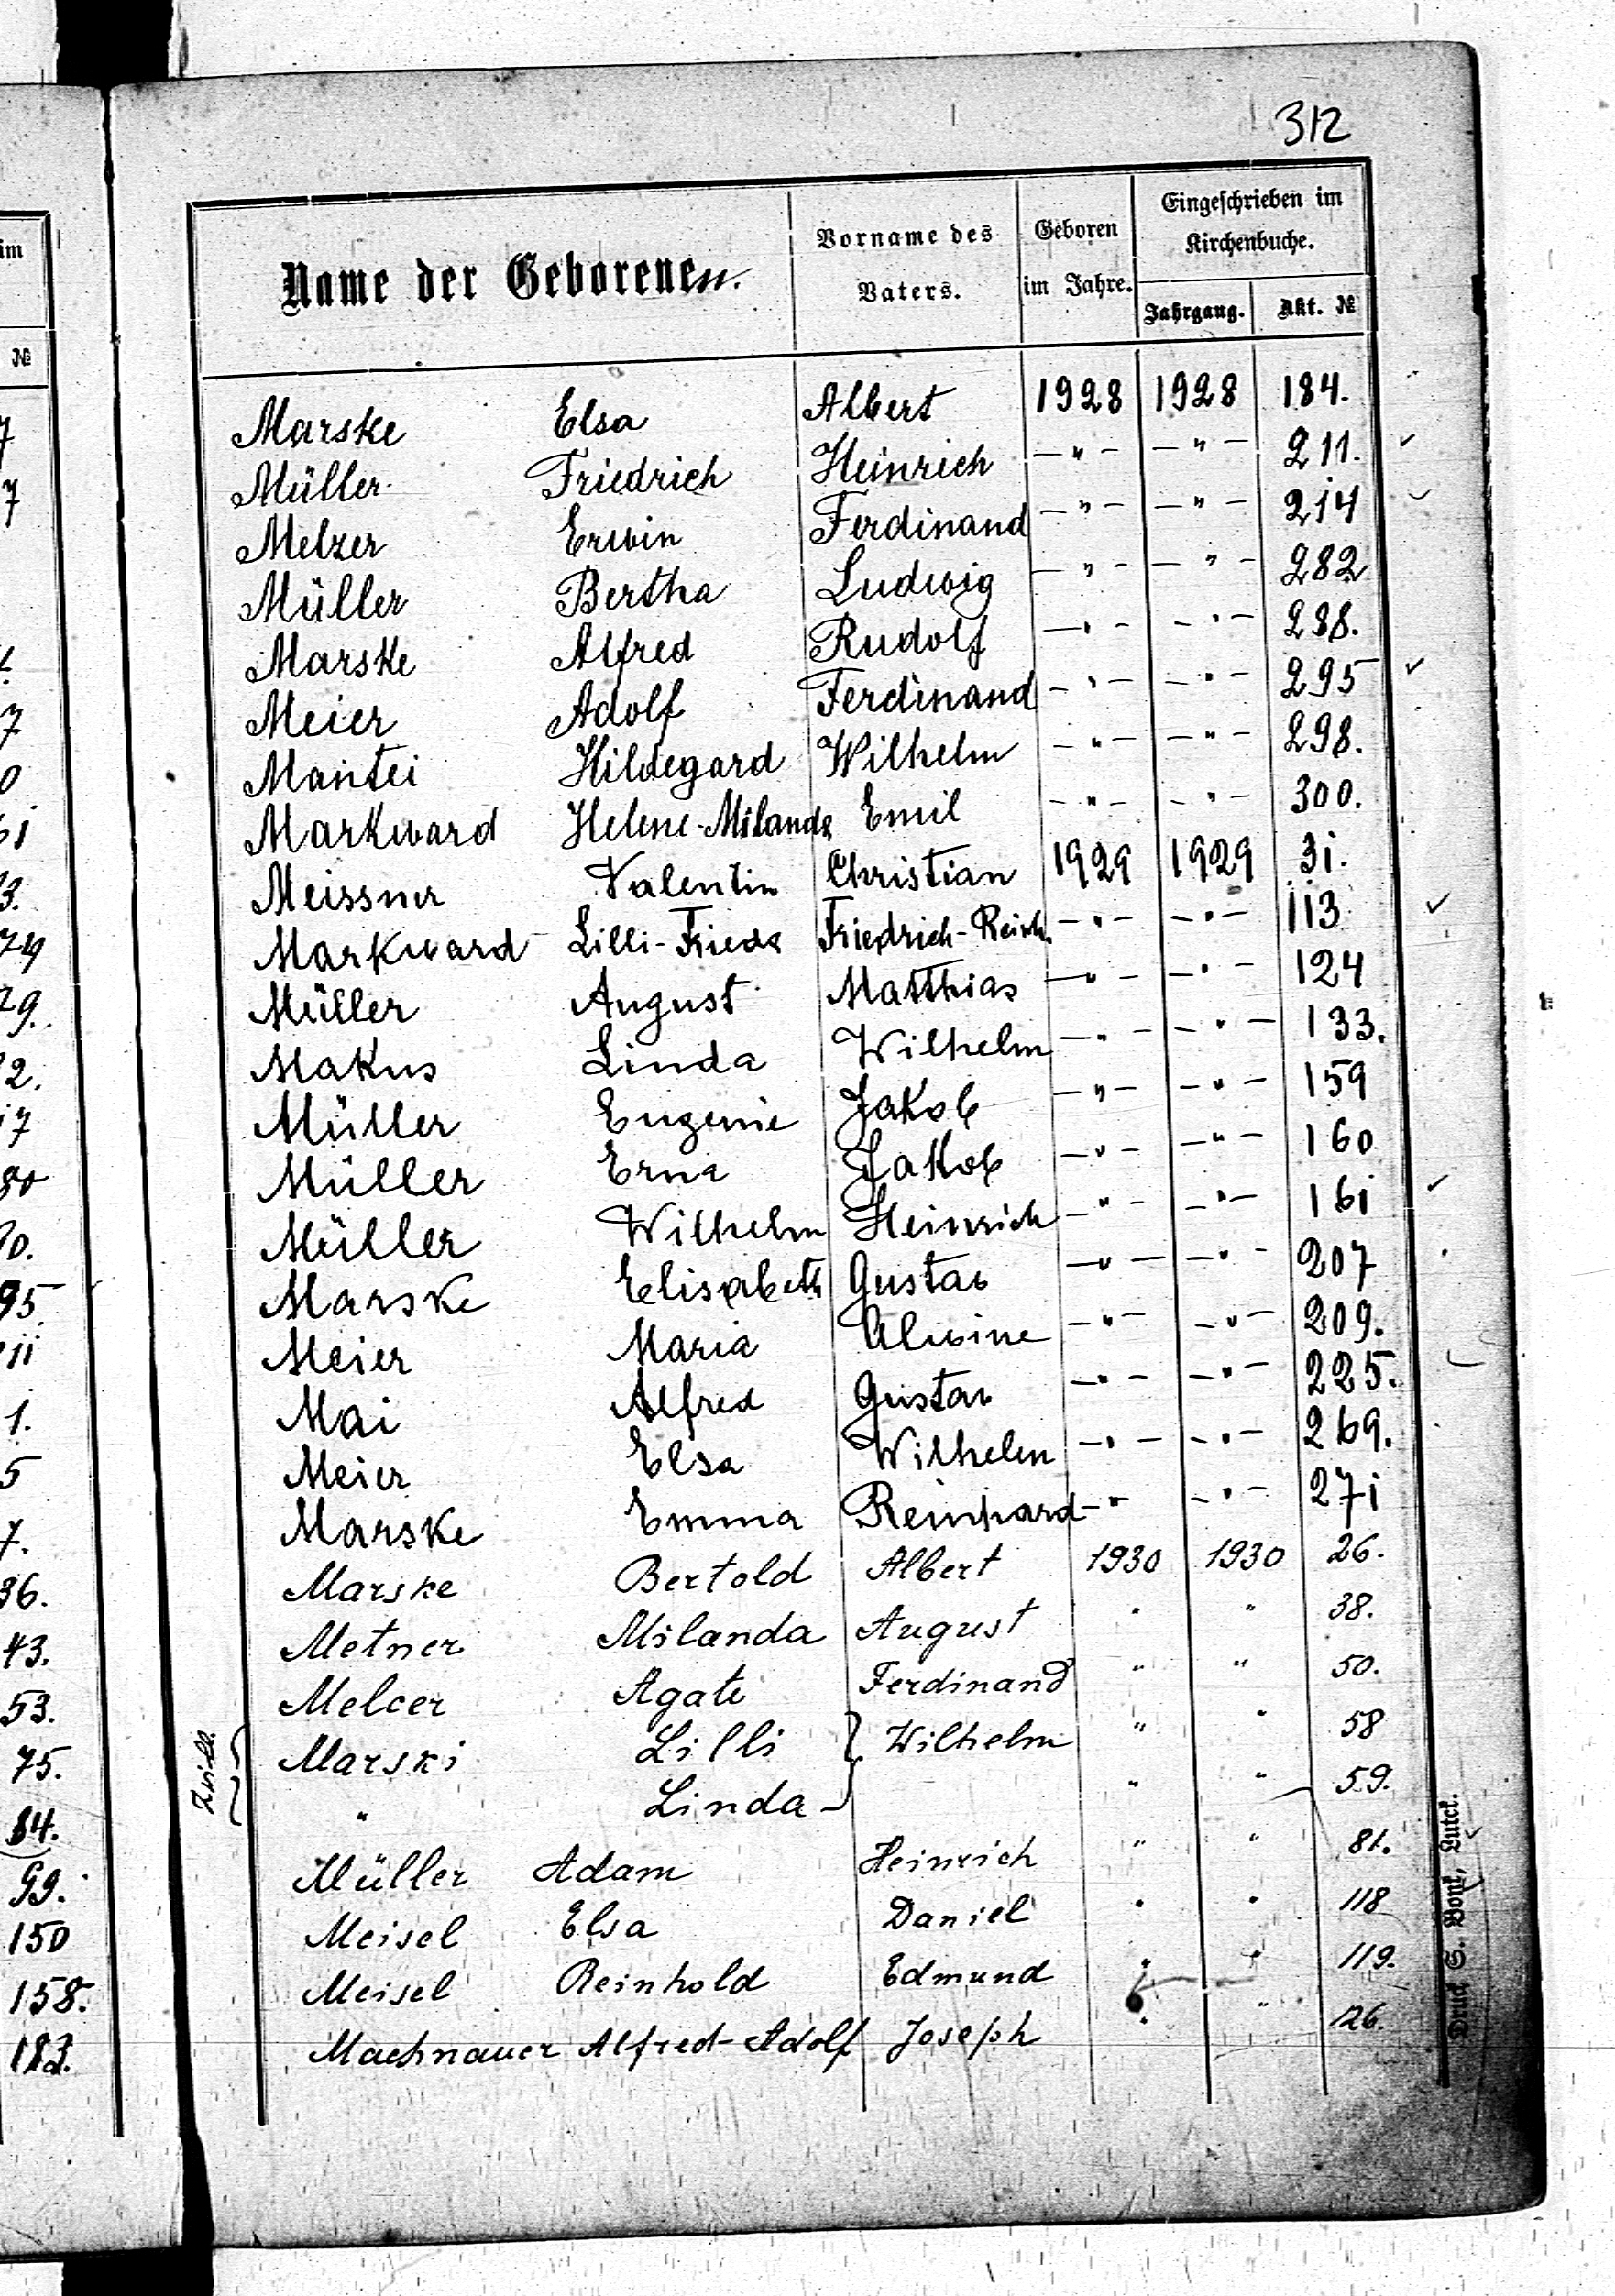 312
Name der Geborenen.
Vorname des Vaters.
Geboren im Jahre.
Eingeschrieben im Kirchenbuche.
Jahrgang. Akt. №
Marske Elsa Albert 1928 1928 184.
Müller Friedrich Heinrich —"— —"— 211.
Melzer Erwin Ferdinand —"— —"— 214
Müller Bertha Ludwig —"— —"— 282
Marske Alfred Rudolf —"— —"— 288.
Meier Adolf Ferdinand —"— —"— 295
Mantei Hildegard Wilhelm —"— —"— 298.
Markward Helene-Milanda Emil —"— —"— 300.
Meissner Valentin Christian 1929 1929 31.
Markward Lilli-Frieda Friedrich- —"— —"— 113
Müller August Matthias —"— —"— 124
Makus Linda Wilhelm —"— —"— 133.
Müller Eugenie Jakob —"— —"— 159
Müller Erna Jakob —"— —"— 160
Müller Wilhelm Heinrich —"— —"— 161
Marske Elisabeth Gustav —"— —"— 207
Meier Maria Alwine —"— —"— 209.
Mai Alfred Gustav —"— —"— 225.
Meier Elsa Wilhelm —"— —"— 269.
Marske Emma Reinhard —"— —"— 271
Marske Bertold Albert 1930 1930 26.
Metner Milanda August " " 38.
Melcer Agate Ferdinand " " 50.
Zwill. { Marski Lilli } Wilhelm " " 58
" Linda " " 59.
Müller Adam Heinrich " " 81.
Meisel Elsa Daniel " " 118
Meisel Reinhold Edmund " " 119.
Machnauer Alfred-Adolf Joseph " " 126.
Druck S. Bont, Luck.
im
№
7
7
7
0
3.
74
29.
2.
17
80
95
11
1.
5
7.
36.
43.
53.
75.
84.
99.
150
158.
183.